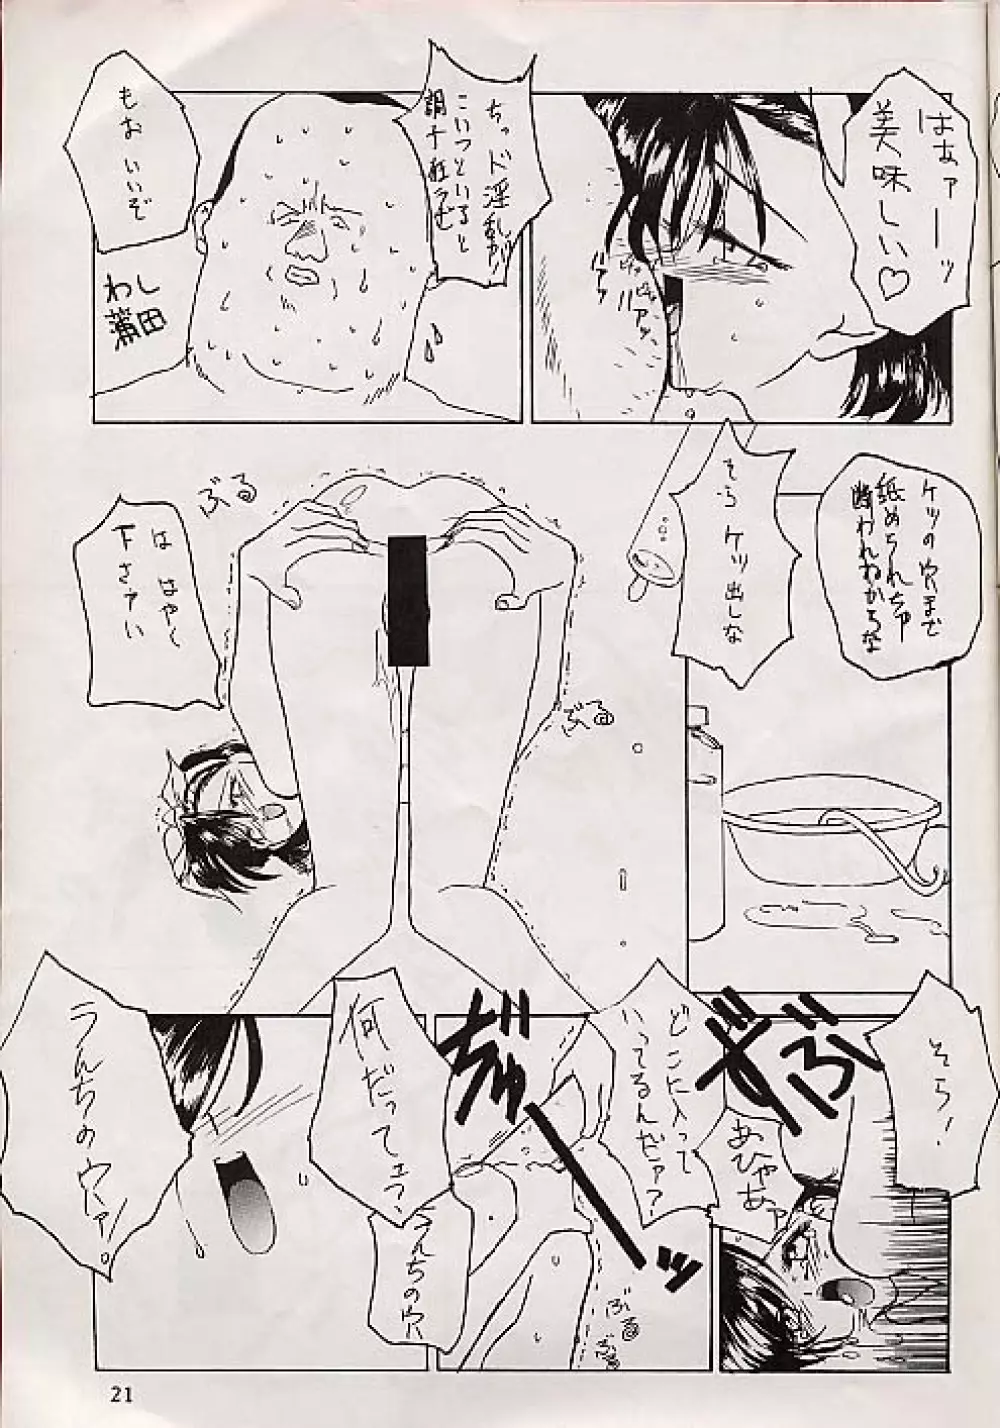 はあァーッ
美味しい♡
ちッド淫乱が!
こいつといると
調子狂うむ
もお いいぞ
わし
蒲田
ケツの穴まで
舐められちゃ
断われねからな
そらケツ出しな
は はやく
下さァい
ぶる
ぶる
そら!
ずぶ
あひゃあァ
どこに入って
いってるんだァ?
ぢゅーッ
ぶる
ぶる
何だってェ?
うんちの穴
うんちの穴ァ!。
21